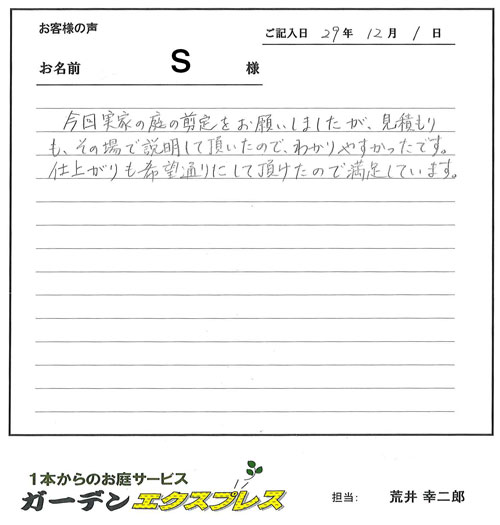 お客様の声
ご記入日 29年 12月 1日
お名前 S 様
今回実家の庭の剪定をお願いしましたが、見積もり
も、その場で説明して頂いたので、わかりやすかったです。
仕上がりも希望通りにして頂けたので満足しています。
1本からのお庭サービス
ガーデンエクスプレス
担当: 荒井 幸二郎